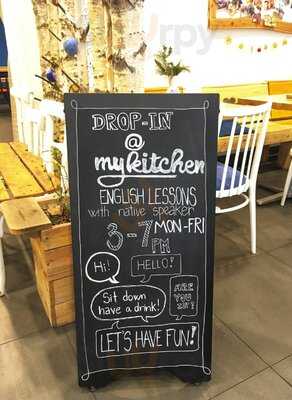 DROP-IN
@
mykitchen
ENGLISH LESSONS
with native speaker
3-7 MON-FRI
PM
Hi!
HELLO!
Sit down
have a drink!
ARE
YOU
IN?
LET'S HAVE FUN!